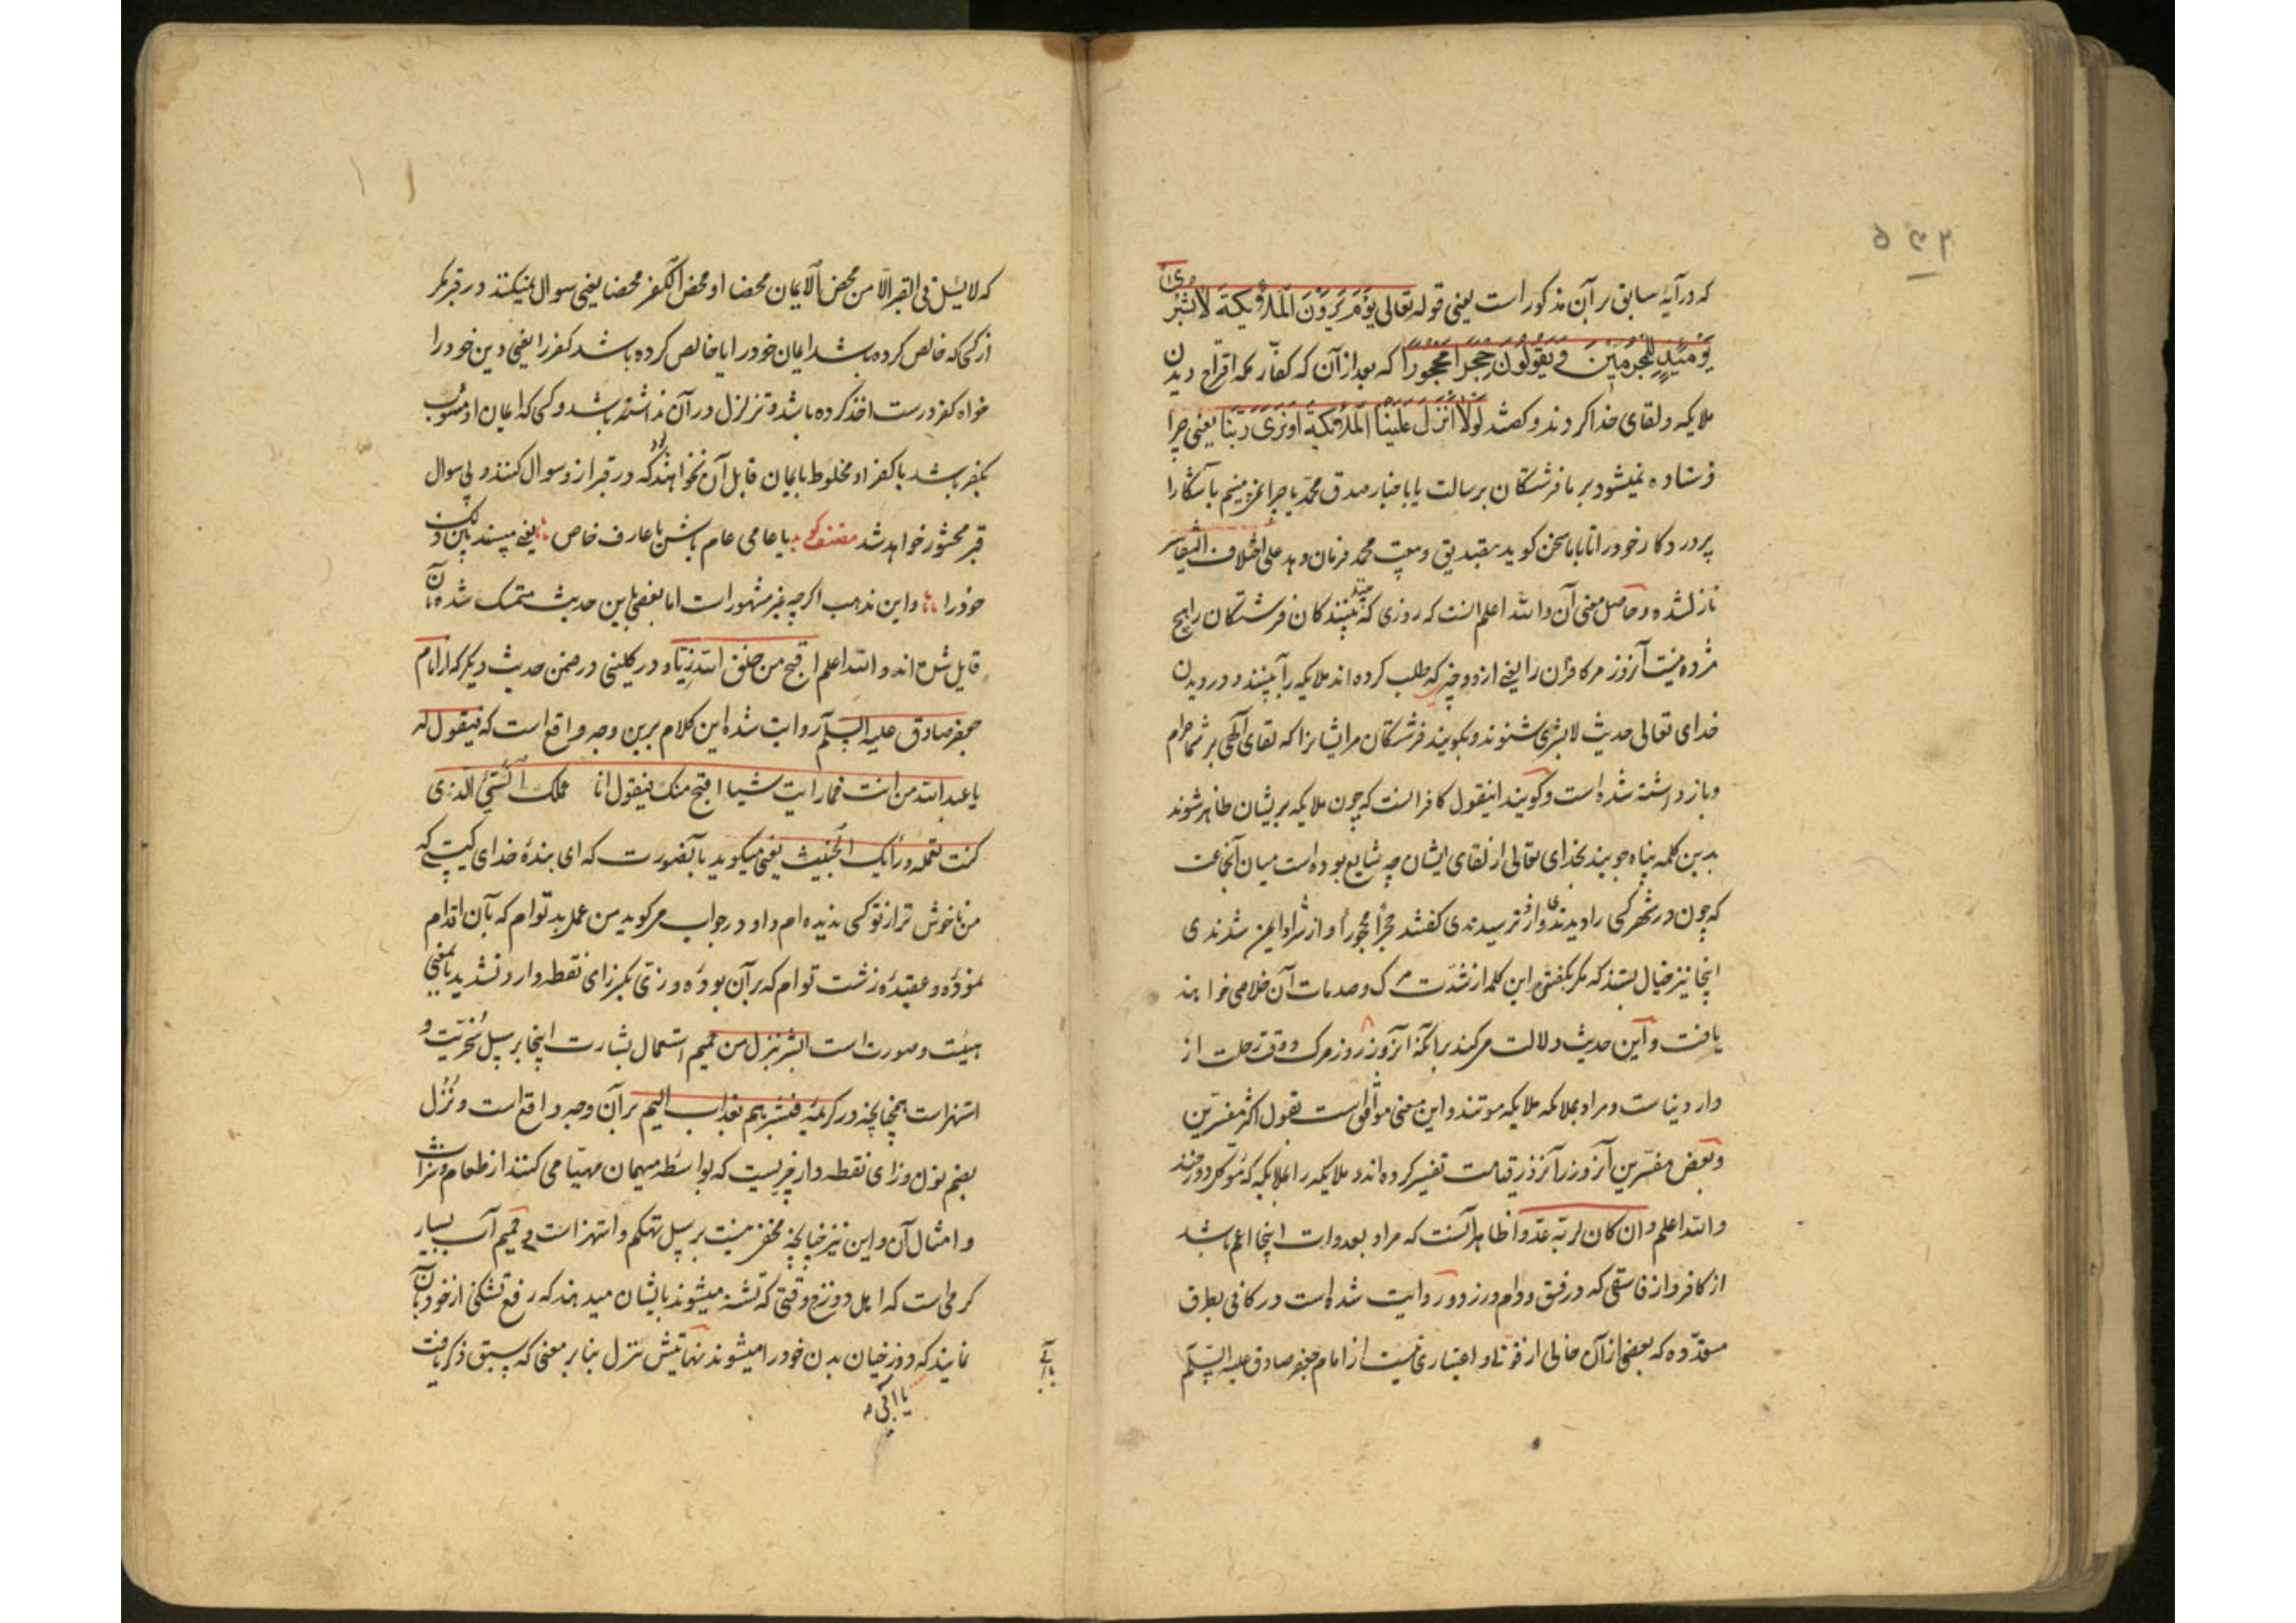 ۵۴۲
که در آیهٔ سابق بر آن مذکور است یعنی قوله تعالی یَوْمَ یَرَوْنَ الْمَلٰئِکَةَ لَا بُشْرَی
یَوْمَئِذٍ لِلْمُجْرِمِینَ وَ یَقُولُونَ حِجْرًا مَحْجُورًا که بعد از آن که کفّار مکه اقتراح دیدن
ملایکه و لقای خدا کردند و گفتند لَوْلَا اُنْزِلَ عَلَیْنَا الْمَلٰئِکَةُ اَوْ نَرَی رَبَّنَا یعنی چرا
فرستاده نمیشود بر ما فرشتگان برسالت یا باخبار صدق محمد یا چرا نمی بینیم ما آشکارا
پروردکار خود را تا با ما سخن کوید بتصدیق و محمد فرمان دهد علی اختلاف التفاسیر
نازل شده و حاصل معنی آن والله اعلم آنست که روزی که ببینند کان فرشتکان را هیچ
مژده نیست آنروز مر کافران را یعنی از دو چیز که طلب کرده اند ملایکه را ببینند و در دیدن
خدای تعالی حدیث لا بشری شنوند و بکویند فرشتکان مر ایشانرا که لقای الهی بر شما حرام
و باز داشته شده است و کویند اینقول کافرانست که چون ملایکه بریشان ظاهر شوند
بدین کلمه پناه جویند بخدای تعالی از لقای ایشان چه شایع بوده است میان آنجماعت
که چون در شهر کسی را دیدندی و از و ترسیدندی کفتند حجرًا محجورًا و از شر او ایمن شدندی
اینجا نیز خیال بستند که مکر بکفتن این کلمه از شدت مرک و صدمات آن خلاصی خواهند
یافت و این حدیث دلالت میکند بر آنکه آنروز روز مرک و وقت رحلت از
دار دنیاست و مراد بملائکه ملایکه موتند و این معنی موافق است بقول اکثر مفسّرین
و بعض مفسّرین آنروز را بروز قیامت تفسیر کرده اند و ملایکه را بملایکه که موکل دوزخند
والله اعلم وان کان لربّه عدوا ظاهر آنست که مراد بعداوت اینجا اعم باشد
از کافر و از فاسقی که در فسق و دوام ورزد و روایت شده است در کافی بطرق
متعدّده که بعضی از آن خالی از قوّتی و اعتباری نیست از امام جعفر صادق علیه السلم
که لا یسئل فی القبر الّا من محض الایمان محضا او محض الکفر محضا یعنی سوال نمیکنند در قبر مکر
از کسی که خالص کرده باشد ایمان خود را یا خالص کرده باشد کفر را یعنی دین خود را
خواه کفر درست اخذ کرده باشد و تزلزل در آن نداشته باشد و کسی که ایمان او مشوب
بکفر باشد یا کفر او مخلوط بایمان قابل آن نخواهد بود که در قبر از و سوال کنند و بی سوال
قبر محشور خواهد شد مصنف کوید یا عامی عام باش یا عارف خاص یعنی مپسند
خود را و این مذهب اکرچه غیر مشهور است اما بعضی باین حدیث متمسک شده بآن
قایل شده اند والله اعلم اقبح من خلق الله زیّا و در کلینی در ضمن حدیث دیکر که از امام
جعفر صادق علیه السلم روایت شده این کلام برین وجه واقع است که فیقول له
یا عبد الله من انت فما رایت شیئا اقبح منک فیقول انا عملک السّیّئ الّذی
کنت تعمله و رأیک الخبیث یعنی میکوید با آنصورت که ای بندهٔ خدای کیستی که
من ناخوش تر از تو کسی ندیده ام و او در جواب میکوید من عمل بد توام که بآن اقدام
نمودهٔ و عقیدهٔ زشت توام که بر آن بودهٔ و زیّ بکسر زای نقطه دار و تشدید یا بمعنی
هیئت و صورت است ابشر بنزل من حمیم استعمال بشارت اینجا بر سبیل سخریّت و
استهزاست همچنانچه در کریمهٔ فبشّرهم بعذاب الیم بر آن وجه واقع است و نُزُل
بضم نون و زای نقطه دار چیزیست که بواسطهٔ میهمان مهیّا می کنند از طعام و شراب
و امثال آن و این نیز چنانچه مخفی نیست بر سبیل تهکم و استهزاست و حمیم آب بسیار
کرمی است که اهل دوزخ وقتی که تشنه میشوند بایشان میدهند که رفع تشنکی از خود بآن
نمایند که دوزخیان بدن خود را میشویند نزل بنا بر معنی که سبق ذکر یافت
یا آبی